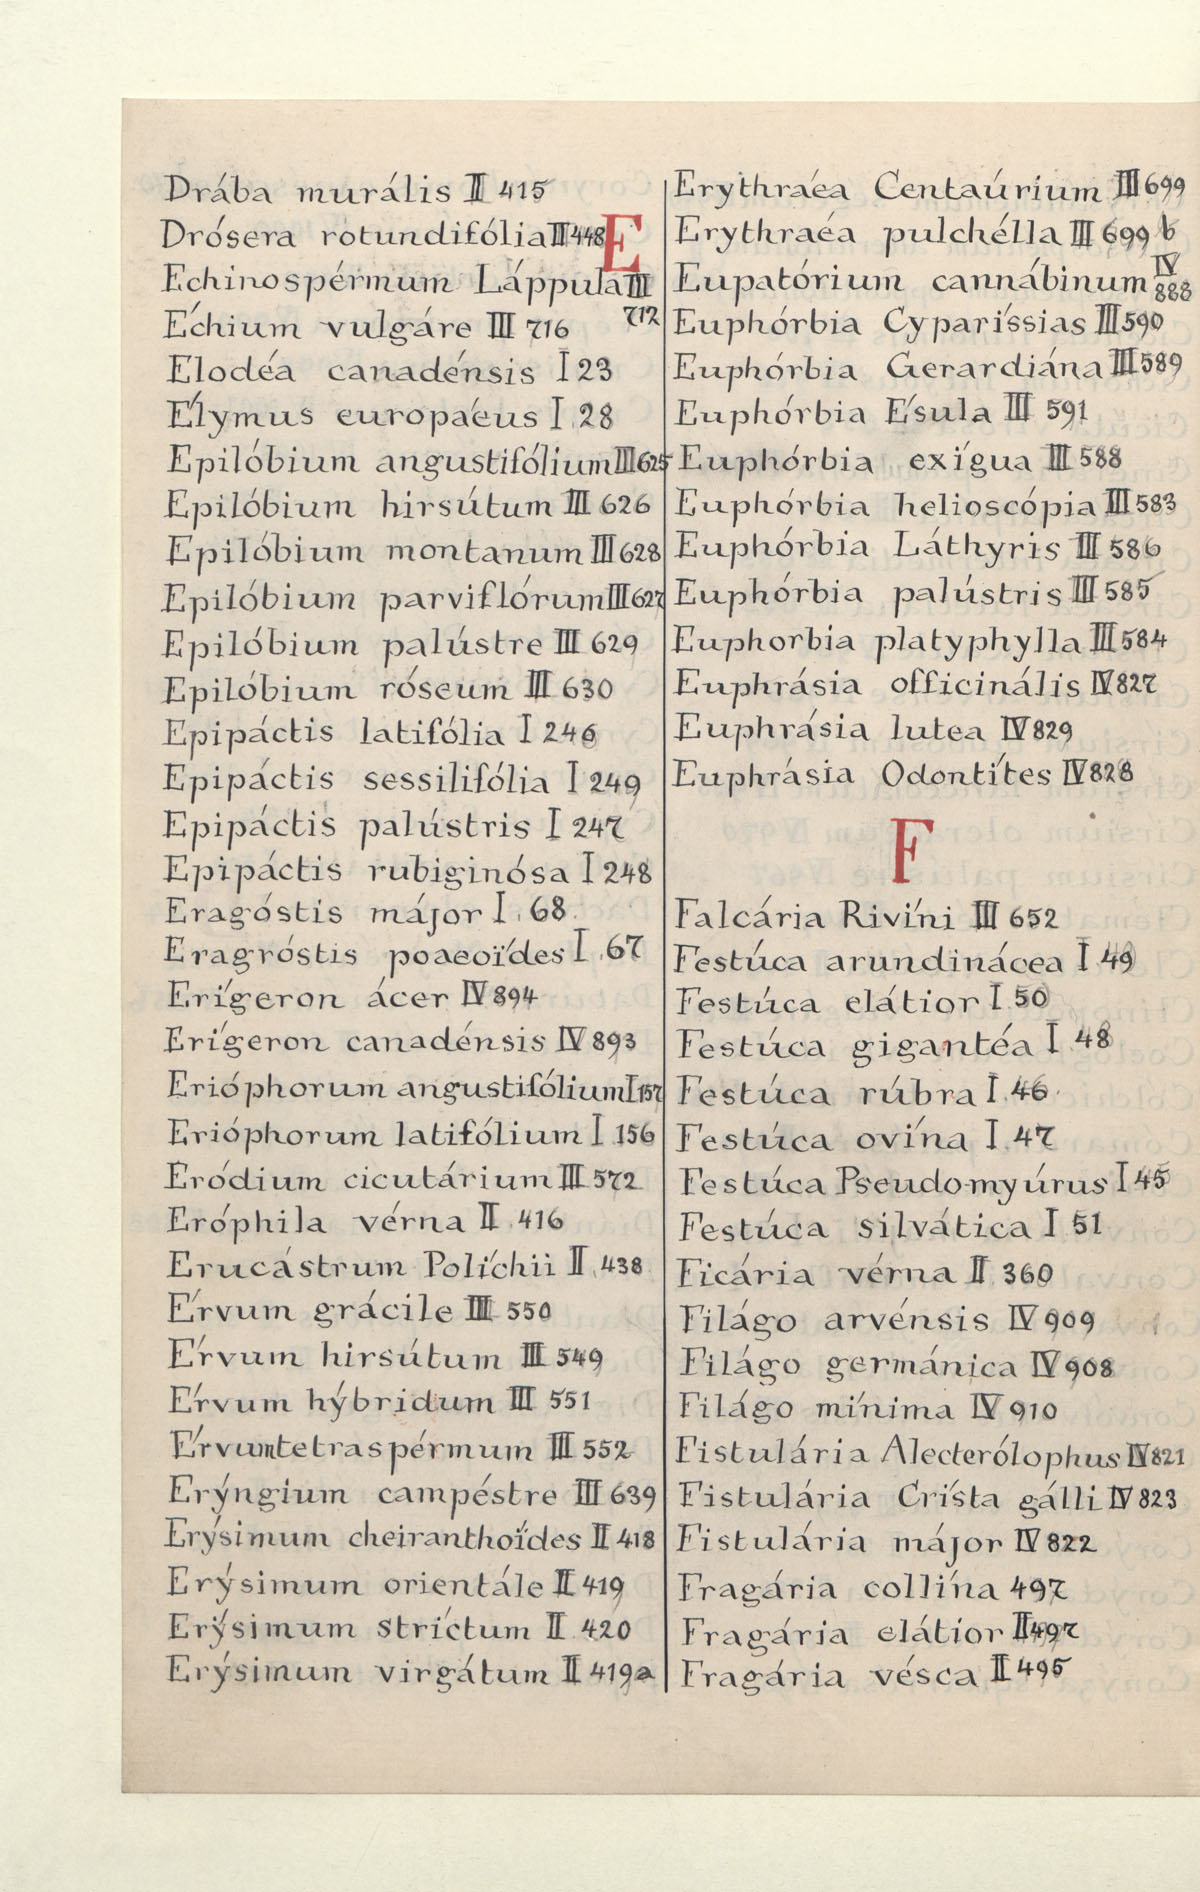 Drába murális II 415
Drósera rotundifólia II 448
E
Echinospérmum Láppula III
712
Échium vulgáre III 716
Elodéa canadénsis I 23
Élymus europáeus I 28
Epilóbium angustifólium III 625
Epilóbium hirsútum III 626
Epilóbium montanum III 628
Epilóbium parviflórum III 627
Epilóbium palústre III 629
Epilóbium róseum III 630
Epipáctis latifólia I 246
Epipáctis sessilifólia I 249
Epipáctis palústris I 247
Epipáctis rubiginósa I 248
Eragóstis májor I 68
Eragróstis poaeoídes I 67
Erígeron ácer IV 894
Erígeron canadénsis IV 893
Erióphorum angustifólium I 157
Erióphorum latifólium I 156
Eródium cicutárium III 572
Eróphila vérna II 416
Erucástrum Políchii II 438
Érvum grácile III 550
Érvum hirsútum III 549
Érvum hýbridum III 551
Érvum tetraspérmum III 552
Erýngium campéstre III 639
Erýsimum cheiranthoídes II 418
Erýsimum orientále II 419
Erýsimum stríctum II 420
Erýsimum virgátum II 419a
Erythraéa Centaúrium III 699
Erythraéa pulchélla III 699 b
Eupatórium cannábinum IV
888
Euphórbia Cyparíssias III 590
Euphórbia Gerardiána III 589
Euphórbia Ésula III 591
Euphórbia exígua III 588
Euphórbia helioscópia III 583
Euphórbia Láthyris III 586
Euphórbia palústris III 585
Euphorbia platyphylla III 584
Euphrásia officinális IV 827
Euphrásia lutea IV 829
Euphrásia Odontítes IV 828
F
Falcária Rivíni III 652
Festúca arundinácea I 49
Festúca elátior I 50
Festúca gigantéa I 48
Festúca rúbra I 46
Festúca ovína I 47
Festúca Pseudo-myúrus I 45
Festúca silvática I 51
Ficária vérna II 360
Filágo arvénsis IV 909
Filágo germánica IV 908
Filágo mínima IV 910
Fistulária Alecterólophus IV 821
Fistulária Crísta gálli IV 823
Fistulária májor IV 822
Fragária collína 497
Fragária elátior II 497
Fragária vésca II 495